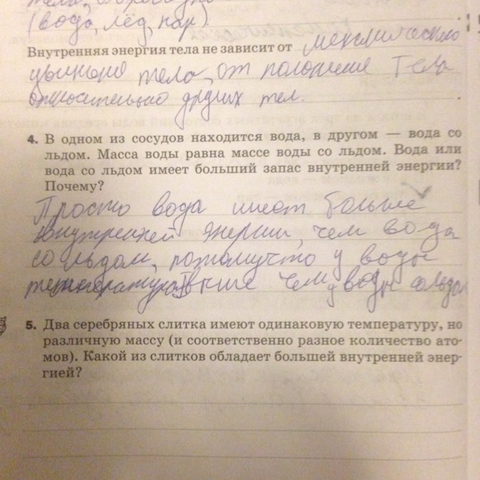 (вода, лёд, пар)
Внутренняя энергия тела не зависит от механического
движения тела, от положения тела
относительно других тел.
4. В одном из сосудов находится вода, в другом — вода со
льдом. Масса воды равна массе воды со льдом. Вода или
вода со льдом имеет больший запас внутренней энергии?
Почему?
Просто вода имеет больше
внутренней энергии, чем вода
со льдом, потомучто у воды
температура выше чем у воды со льдом
5. Два серебряных слитка имеют одинаковую температуру, но
различную массу (и соответственно разное количество ато-
мов). Какой из слитков обладает большей внутренней энер-
гией?